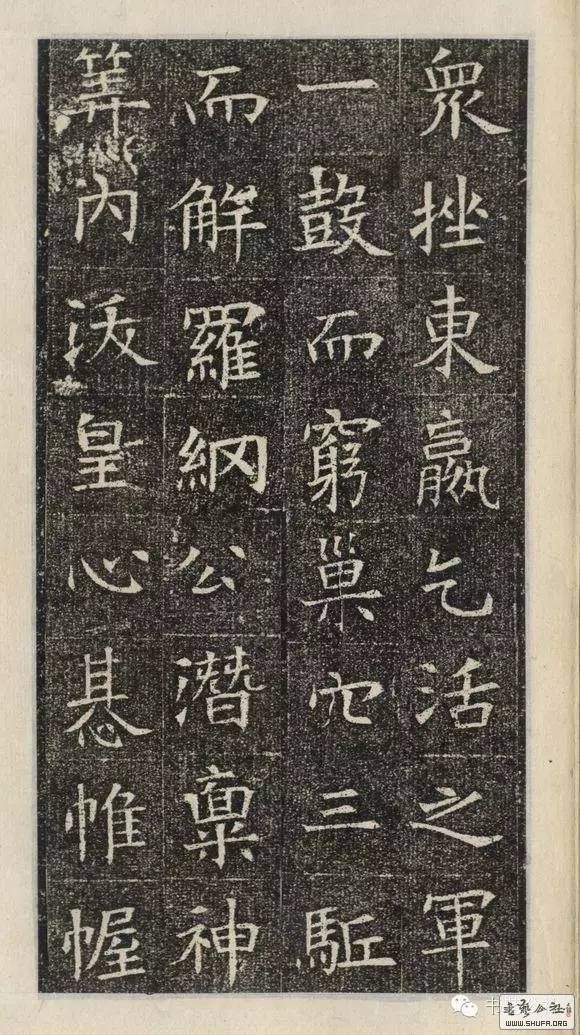 衆挫東嬴乞活之軍
一鼓而窮巢穴三駈
而解羅網公潛稟神
筭內沃皇心惎帷幄
書艺公社
WWW.SHUFA.ORG